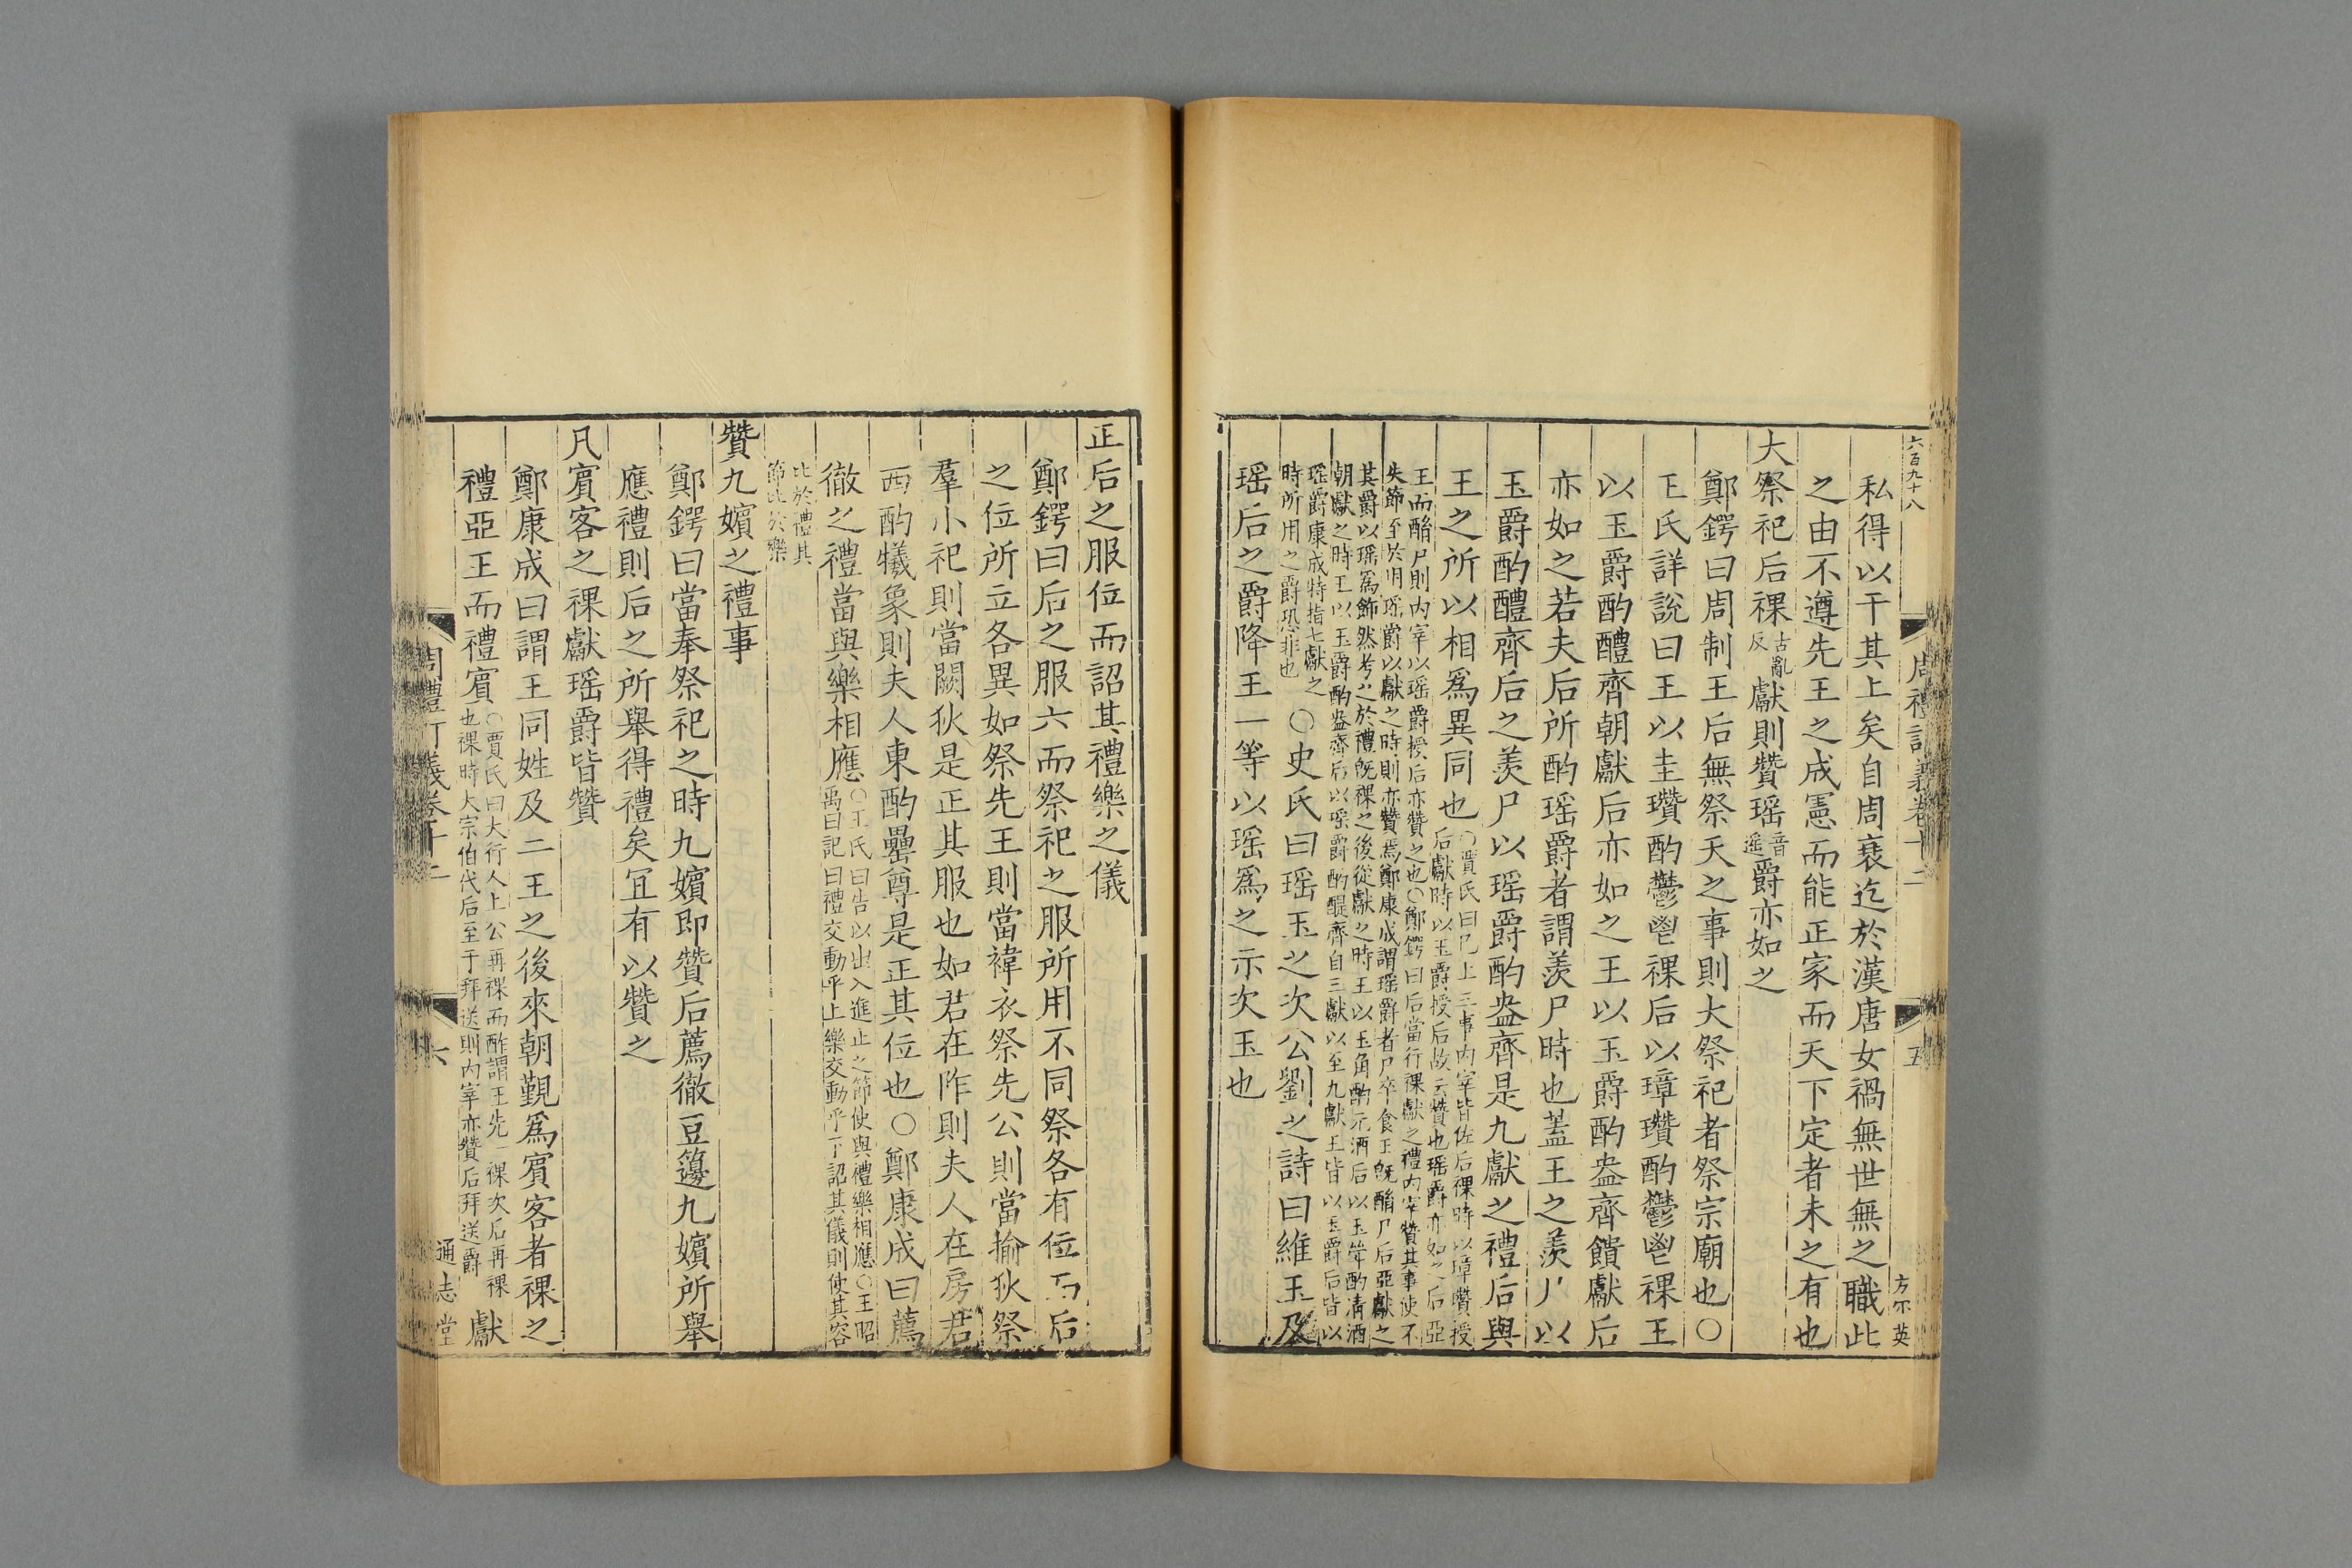 六百九十八
周禮訂義卷十二
五
方不英
私得以干其上矣自周衰迄於漢唐女禍無世無之職此
之由不遵先王之成憲而能正家而天下定者未之有也
大祭祀后祼古亂反獻則贊瑶音遥爵亦如之
鄭鍔曰周制王后無祭天之事則大祭祀者祭宗廟也○
王氏詳說曰王以圭瓚酌鬱鬯祼后以璋瓚酌鬱鬯祼王
以玉爵酌醴齊朝獻后亦如之王以玉爵酌盎齊饋獻后
亦如之若夫后所酌瑶爵者謂羨尸時也蓋王之羨尸以
玉爵酌醴齊后之羨尸以瑶爵酌盎齊是九獻之禮后與
王之所以相爲異同也○賈氏曰已上三事内宰皆佐后祼時以璋瓚授
后獻時以玉爵授后故云贊也瑶爵亦如之后亞
王而酳尸則内宰以瑶爵授后亦贊之也○鄭鍔曰后當行祼獻之禮内宰贊其事使不
失節至於用瑶爵以獻之時則亦贊焉鄭康成謂瑶爵者尸卒食王旣酳尸后亞獻之
其爵以瑶爲飾然考之於禮旣祼之後從獻之時王以玉角酌元酒后以玉斚酌淸酒
朝獻之時王以玉爵酌盎齊后以瑶爵酌醍齊自三獻以至九獻王皆以玉爵后皆以
瑶爵康成特指七獻之
時所用之爵恐非也○史氏曰瑶玉之次公劉之詩曰維玉及
瑶后之爵降王一等以瑶爲之示次玉也
正后之服位而詔其禮樂之儀
鄭鍔曰后之服六而祭祀之服所用不同祭各有位而后
之位所立各異如祭先王則當褘衣祭先公則當揄狄祭
羣小祀則當闕狄是正其服也如君在阼則夫人在房君
西酌犧象則夫人東酌罍尊是正其位也○鄭康成曰薦
徹之禮當與樂相應○王氏曰告以出入進止之節使與禮樂相應○王昭
禹曰記曰禮交動乎上樂交動乎下詔其儀則使其容
比於禮其
節比於樂
贊九嬪之禮事
鄭鍔曰當奉祭祀之時九嬪即贊后薦徹豆籩九嬪所舉
應禮則后之所舉得禮矣宜有以贊之
凡賓客之祼獻瑶爵皆贊
鄭康成曰謂王同姓及二王之後來朝覲爲賓客者祼之
禮亞王而禮賓○賈氏曰大行人上公再祼而酢謂王先一祼次后再祼
也祼時大宗伯代后至于拜送則内宰亦贊后拜送爵獻
周禮訂義卷十二
六
通志堂